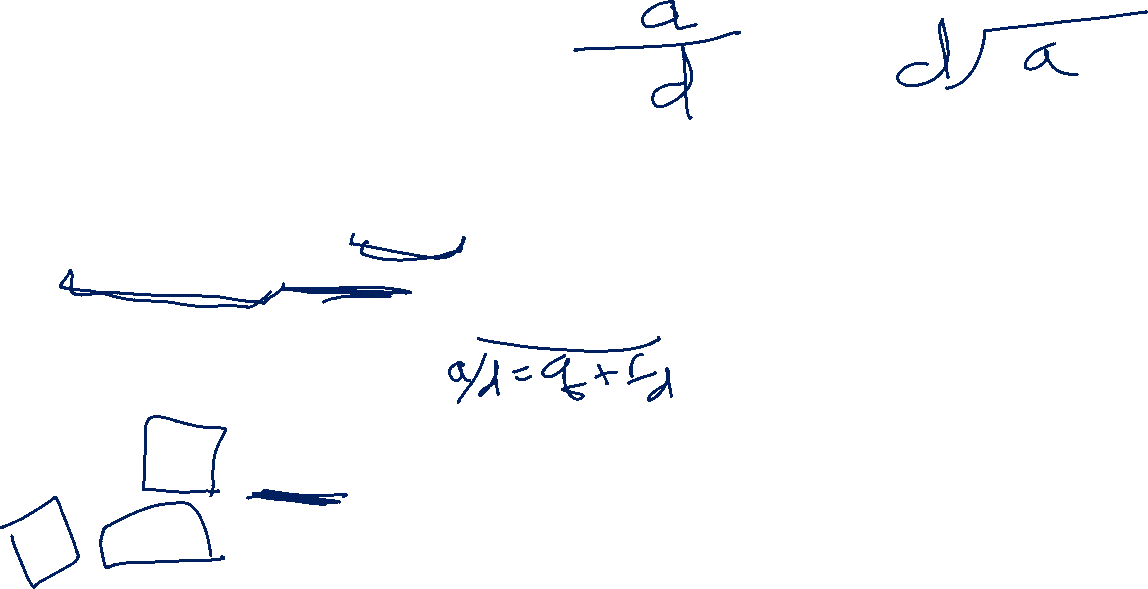 a/d d√a
a/d = q + r/d